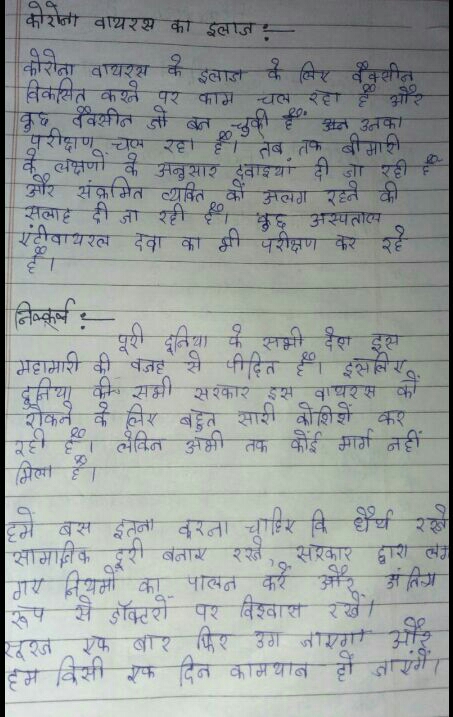 कोरोना वायरस का इलाज :—
कोरोना वायरस के इलाज के लिए वैक्सीन
विकसित करने पर काम चल रहा है और
कुछ वैक्सीन जो बन चुकी हैं उनका
परीक्षण चल रहा है। तब तक बीमारी
के लक्षणों के अनुसार दवाइयां दी जा रही है
और संक्रमित व्यक्ति को अलग रहने की
सलाह दी जा रही है। कुछ अस्पताल
एंटीवायरल दवा का भी परीक्षण कर रहे
हैं।
निष्कर्ष :—
पूरी दुनिया के सभी देश इस
महामारी की वजह से पीड़ित हैं। इसलिए
दुनिया की सभी सरकार इस वायरस को
रोकने के लिए बहुत सारी कोशिशें कर
रही हैं। लेकिन अभी तक कोई मार्ग नहीं
मिला है।
हमें बस इतना करना चाहिए कि धैर्य रखे
सामाजिक दूरी बनाए रखे, सरकार द्वारा लग
गए नियमों का पालन करें और अंतिम
रूप से डॉक्टरों पर विश्वास रखें।
सूरज एक बार फिर उग जाएगा और
हम किसी एक दिन कामयाब हो जाएंगे।